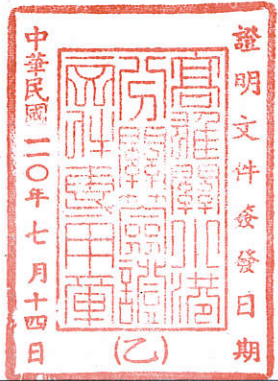 證明文件簽發日期
高雄關小港
分關簽證
文件專用章
中華民國一一〇年七月十四日
(乙)